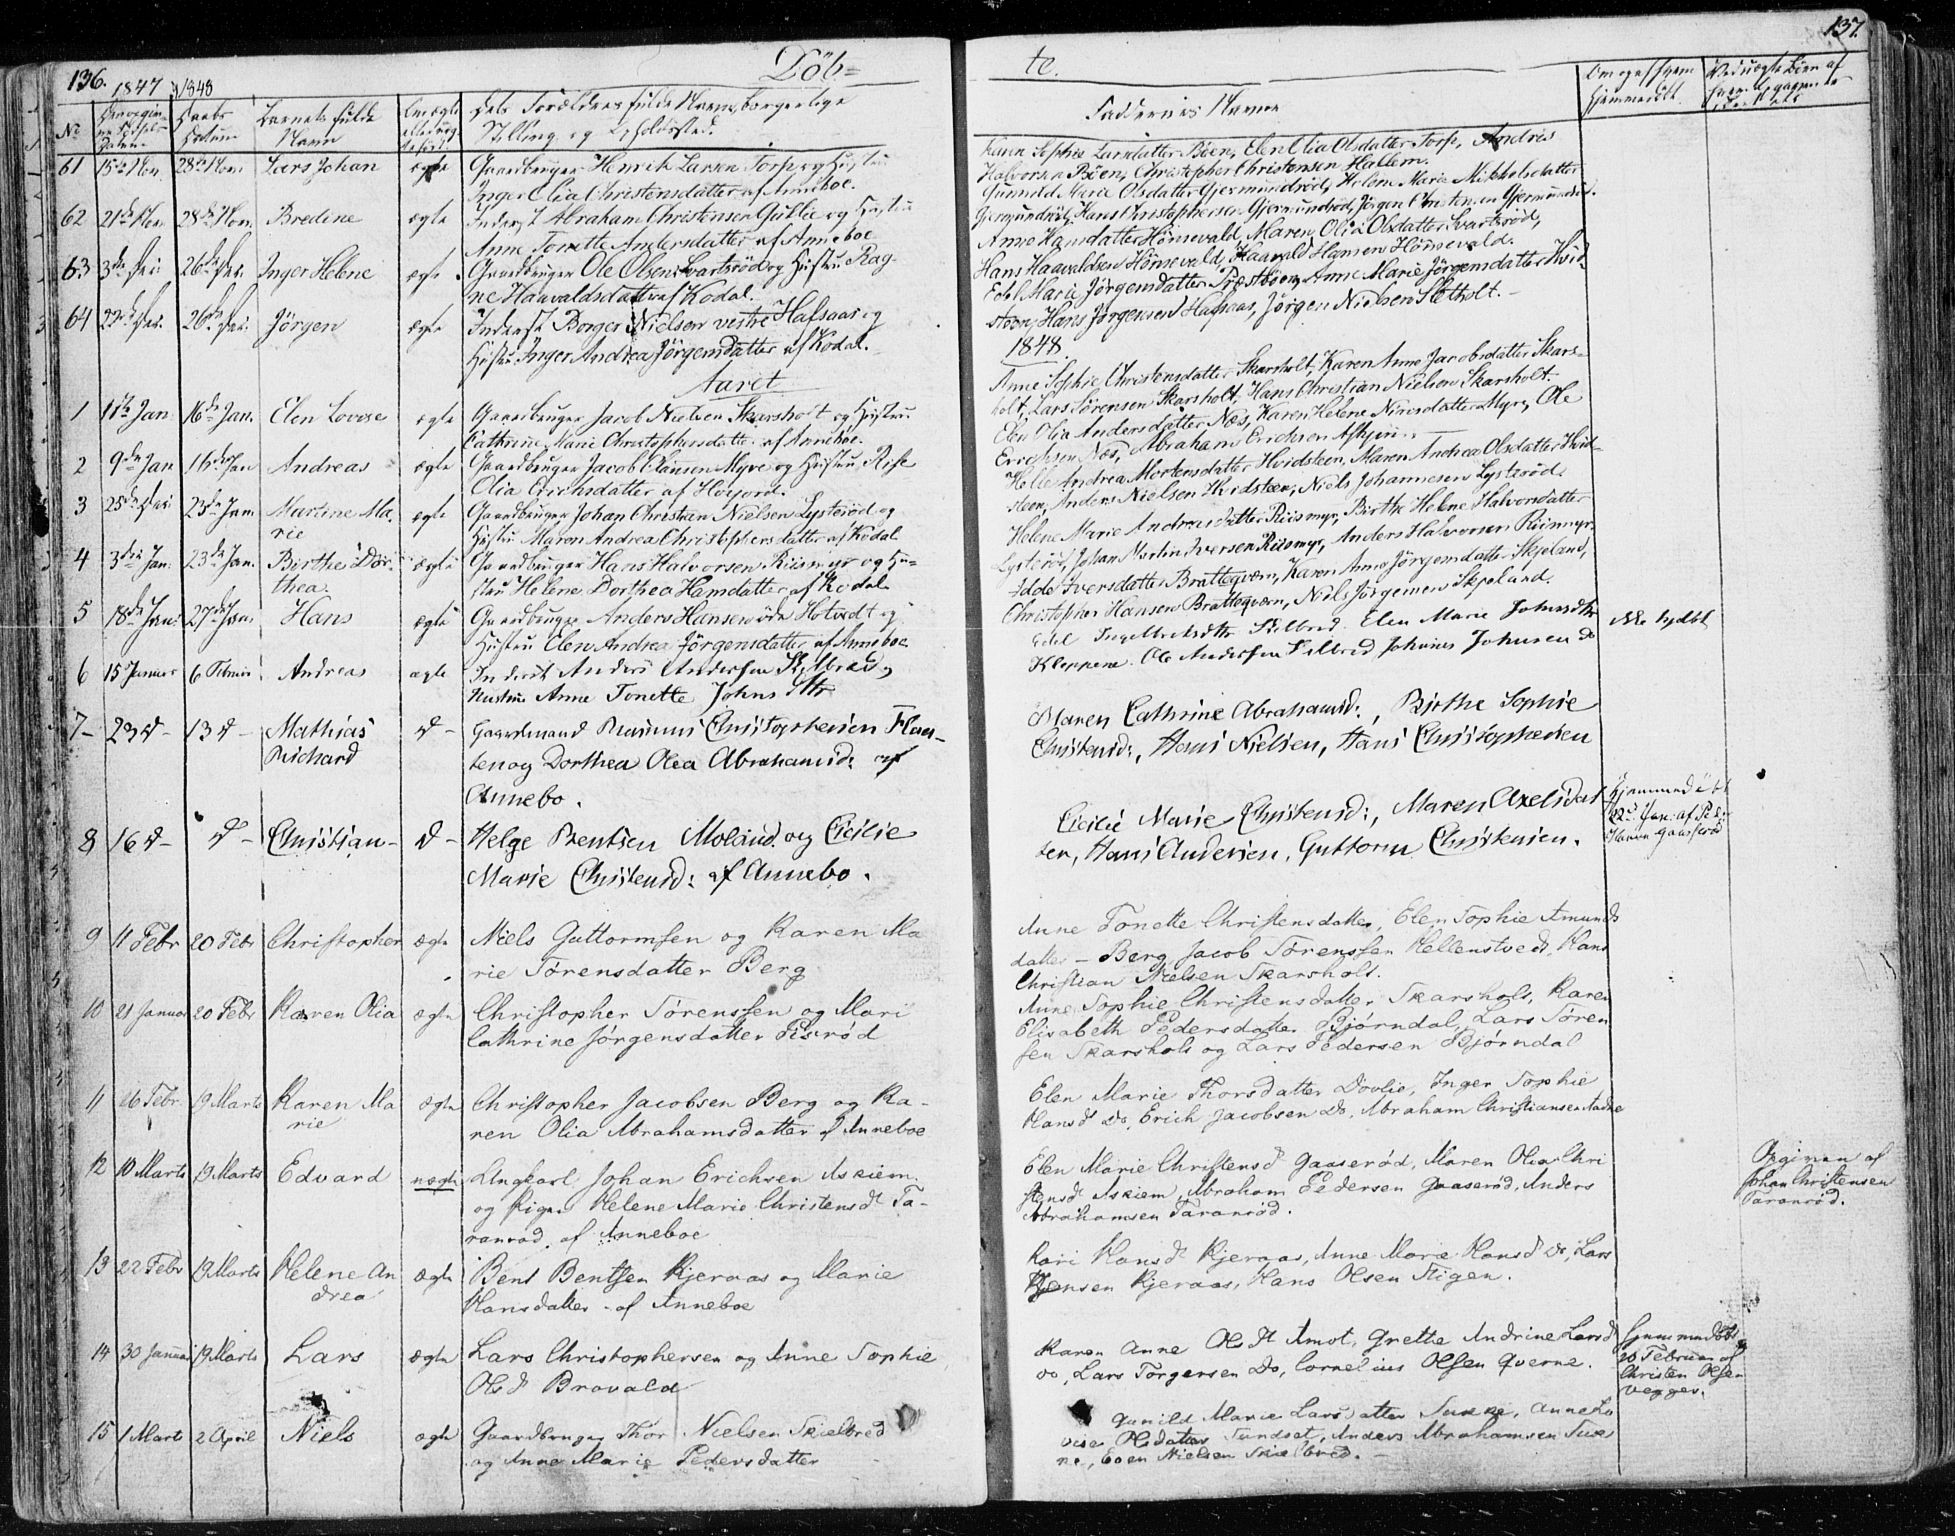 136.
1847 & 1848
Döb=
te.
137.
No
Barnets fulde
Navn
Dets Forældres fulde Navne, borgerlige
Stilling og Opholdssted.
Faddernes Navne
Om opgivet hjem
hjemmedöbt
61 15de Nov. 28de Nov. Lars Johan ægte Gaardbruger Henrik Larsen Torp og Hustru
Inger Olia Christensdatter af Anneboe.
Karen Sophie Larsdatter Böen, Elen Olia Olsdatter Torp, Andreas
Halvorsen Böen, Christopher Christensen Hallem.
62 21de Nov. 28de Nov. Bredine ægte Inderst Abraham Christensen Gublie og Hustru
Anne Tonette Andersdatter af Anneboe
Gunnild Marie Olsdatter Gjermundröd, Helene Marie Mikkelsdatter
Gjermundröd, Hans Christophersen Gjermundröd, Jörgen Christensen Gjermundröd.
63 3de Dec. 26de Dec. Inger Helene ægte Gaardbruger Ole Olsen Svartsröd og Hustru Rag-
ne Haavaldsdatter af Kodal.
Anne Hansdatter Hönsevald, Maren Olia Olsdatter Svartsröd,
Hans Haavaldsen Hönsevald, Haavald Hansen Hönsevald.
64 22de Dec. 26de Dec. Jörgen ægte Inderst Borger Nielsen vestre Hafsaas og
Hustru Inger Andrea Jörgensdatter af Kodal.
Edel Marie Jörgensdatter Præstböen, Anne Marie Jörgensdatter Hvid-
steen, Hans Jörgensen Hafsaas, Jörgen Nielsen Sletholt.
Aaret
1848.
1 11te Jan. 16de Jan. Elen Lovise ægte Gaardbruger Jacob Nielsen Skarsholt og Hustru
Cathrine Marie Christophersdatter af Anneboe.
Anne Sophie Christensdatter Skarsholt, Karen Anne Jacobsdatter Skars-
holt, Lars Sörensen Skarsholt, Hans Christian Nielsen Skarsholt.
2 9de Jan. 16de Jan. Andreas ægte Gaardbruger Jacob Clausen Myre og Hustru
Olia Erichsdatter af Höyjord.
Elen Olia Andersdatter Næs, Karen Helene Nirisdatter Myre, Ole
Erichsen Næs, Abraham Erichsen Askjem.
3 25de Dec. 23de Jan. Martine Ma-
rie ægte Gaardbruger Johan Christian Nielsen Lysteröd og
Hustru Maren Andrea Christophersdatter af Kodal
Helle Andrea Mortensdatter Hvidsteen, Maren Andrea Olsdatter Hvid-
steen, Anders Nielsen Hvidsteen, Niels Johannesen Lysteröd.
4 3die Jan. 23de Jan. Birthe Dor-
thea ægte Gaardbruger Hans Halvorsen Riismyr og Hu-
stru Helene Dorthea Hansdatter af Kodal
Helene Marie Andreasdatter Riismyr, Birthe Helene Halvorsdatter
Lysteröd, Johan Martin Iversen Riismyr, Anders Halvorsen Riismyr.
5 18de Jan. 27de Jan. Hans ægte Gaardbruger Anders Hansen Hotvedt og
Hustru Elen Andrea Jörgensdatter af Anneboe
Idde Iversdatter Bratteqværn, Karen Anne Jörgensdatter Skjeland,
Christopher Hansen Bratteqværn, Niels Jörgensen Skjeland.
6 15 Januar 6 Februar Andreas ægte Inderst Anders Andersen Skilbred og
Hustru Anne Tonette Johnsdtr
Edel Ingebretsdtr Skilbred. Elen Marie Johnsdtr
Kleppene. Ole Andersen Skilbred Johannes Johnsen do
7 23 d 13 d Mathias
Richard d Gaardmand Rasmus Christophersen Flaa-
ten og Dorthea Olea Abrahamsd: af
Annebo.
Maren Cathrine Abrahamsd:, Birthe Sophie
Christensd:, Hans Nielsen, Hans Christophersen
8 16 d d Christian d Helge Bentsen Moland og Cicilie
Marie Christensd: af Annebo.
Cicilie Marie Christensd:, Maren Axelsdat
ter, Hans Andersen, Guttorm Christensen.
Hjemmedöbt
22de Jan. af Peder
Hansen Gaaseröd
9 11 Febr 20 Febr Christopher ægte Niels Guttormsen og Karen Ma
rie Sörensdatter Berg
Anne Tonette Christensdatter, Elen Sophie Amunds
datter – Berg Jacob Sörensen Hellenstvedt, Hans
Christian Nielsen Skarsholt.
10 21 Januar 20 Febr Karen Olia ægte Christopher Sörenssen og Mari
Cathrine Jörgensdatter Piseröd
Anne Sophie Christensdatter Skarsholt, Karen
Elisabeth Pedersdatter Björndal, Lars Sören
sen Skarsholt og Lars Pedersen Björndal
11 26 Febr 19 Marts Karen Ma
rie ægte Christopher Jacobsen Berg og Ka-
ren Olia Abrahamsdatter af Anneboe
Elen Marie Thorsdatter Dovlie, Inger Sophie
Hansd Do, Erich Jacobsen Do, Abraham Christiansen Aadne
12 10 Marts 19 Marts Edvard uægte Ungkarl Johan Erichsen Askiem
og Pigen Helene Marie Christensd Ta-
ranröd af Anneboe
Elen Marie Christensd Gaaseröd, Maren Olia Chri
stensd Askiem, Abraham Pedersen Gaaseröd, Anders
Abrahamsen Taranröd.
Opgiven af
Johan Christensen
Taranröd.
13 22 Febr 19 Marts Helene An
drea ægte Bent Bentsen Kjeraas og Marie
Hansdatter af Anneboe
Kari Hansd Kjeraas, Anne Marie Hansd do, Lars
Jensen Kjeraas, Hans Olsen Stigen.
14 30 Januar 19 Marts Lars ægte Lars Christophersen og Anne Sophie
Olsd Bravald
Karen Anne Olsd Amot, Grethe Andrine Larsd
do, Lars Torgersen Do, Cornelius Olsen Qverne.
Hjemmedöbt
20 Februar af
Christen Olsen
Vegger.
15 1 Mart 2 April Niels ægte Gaardbruger Thor Nielsen Skielbred
og Anne Marie Pedersdatter
Gunild Marie Larsdatter, Anne Lo
vise Olsdatter Sundset, Anders Abrahamsen
ne, Even Nielsen Skielbred.